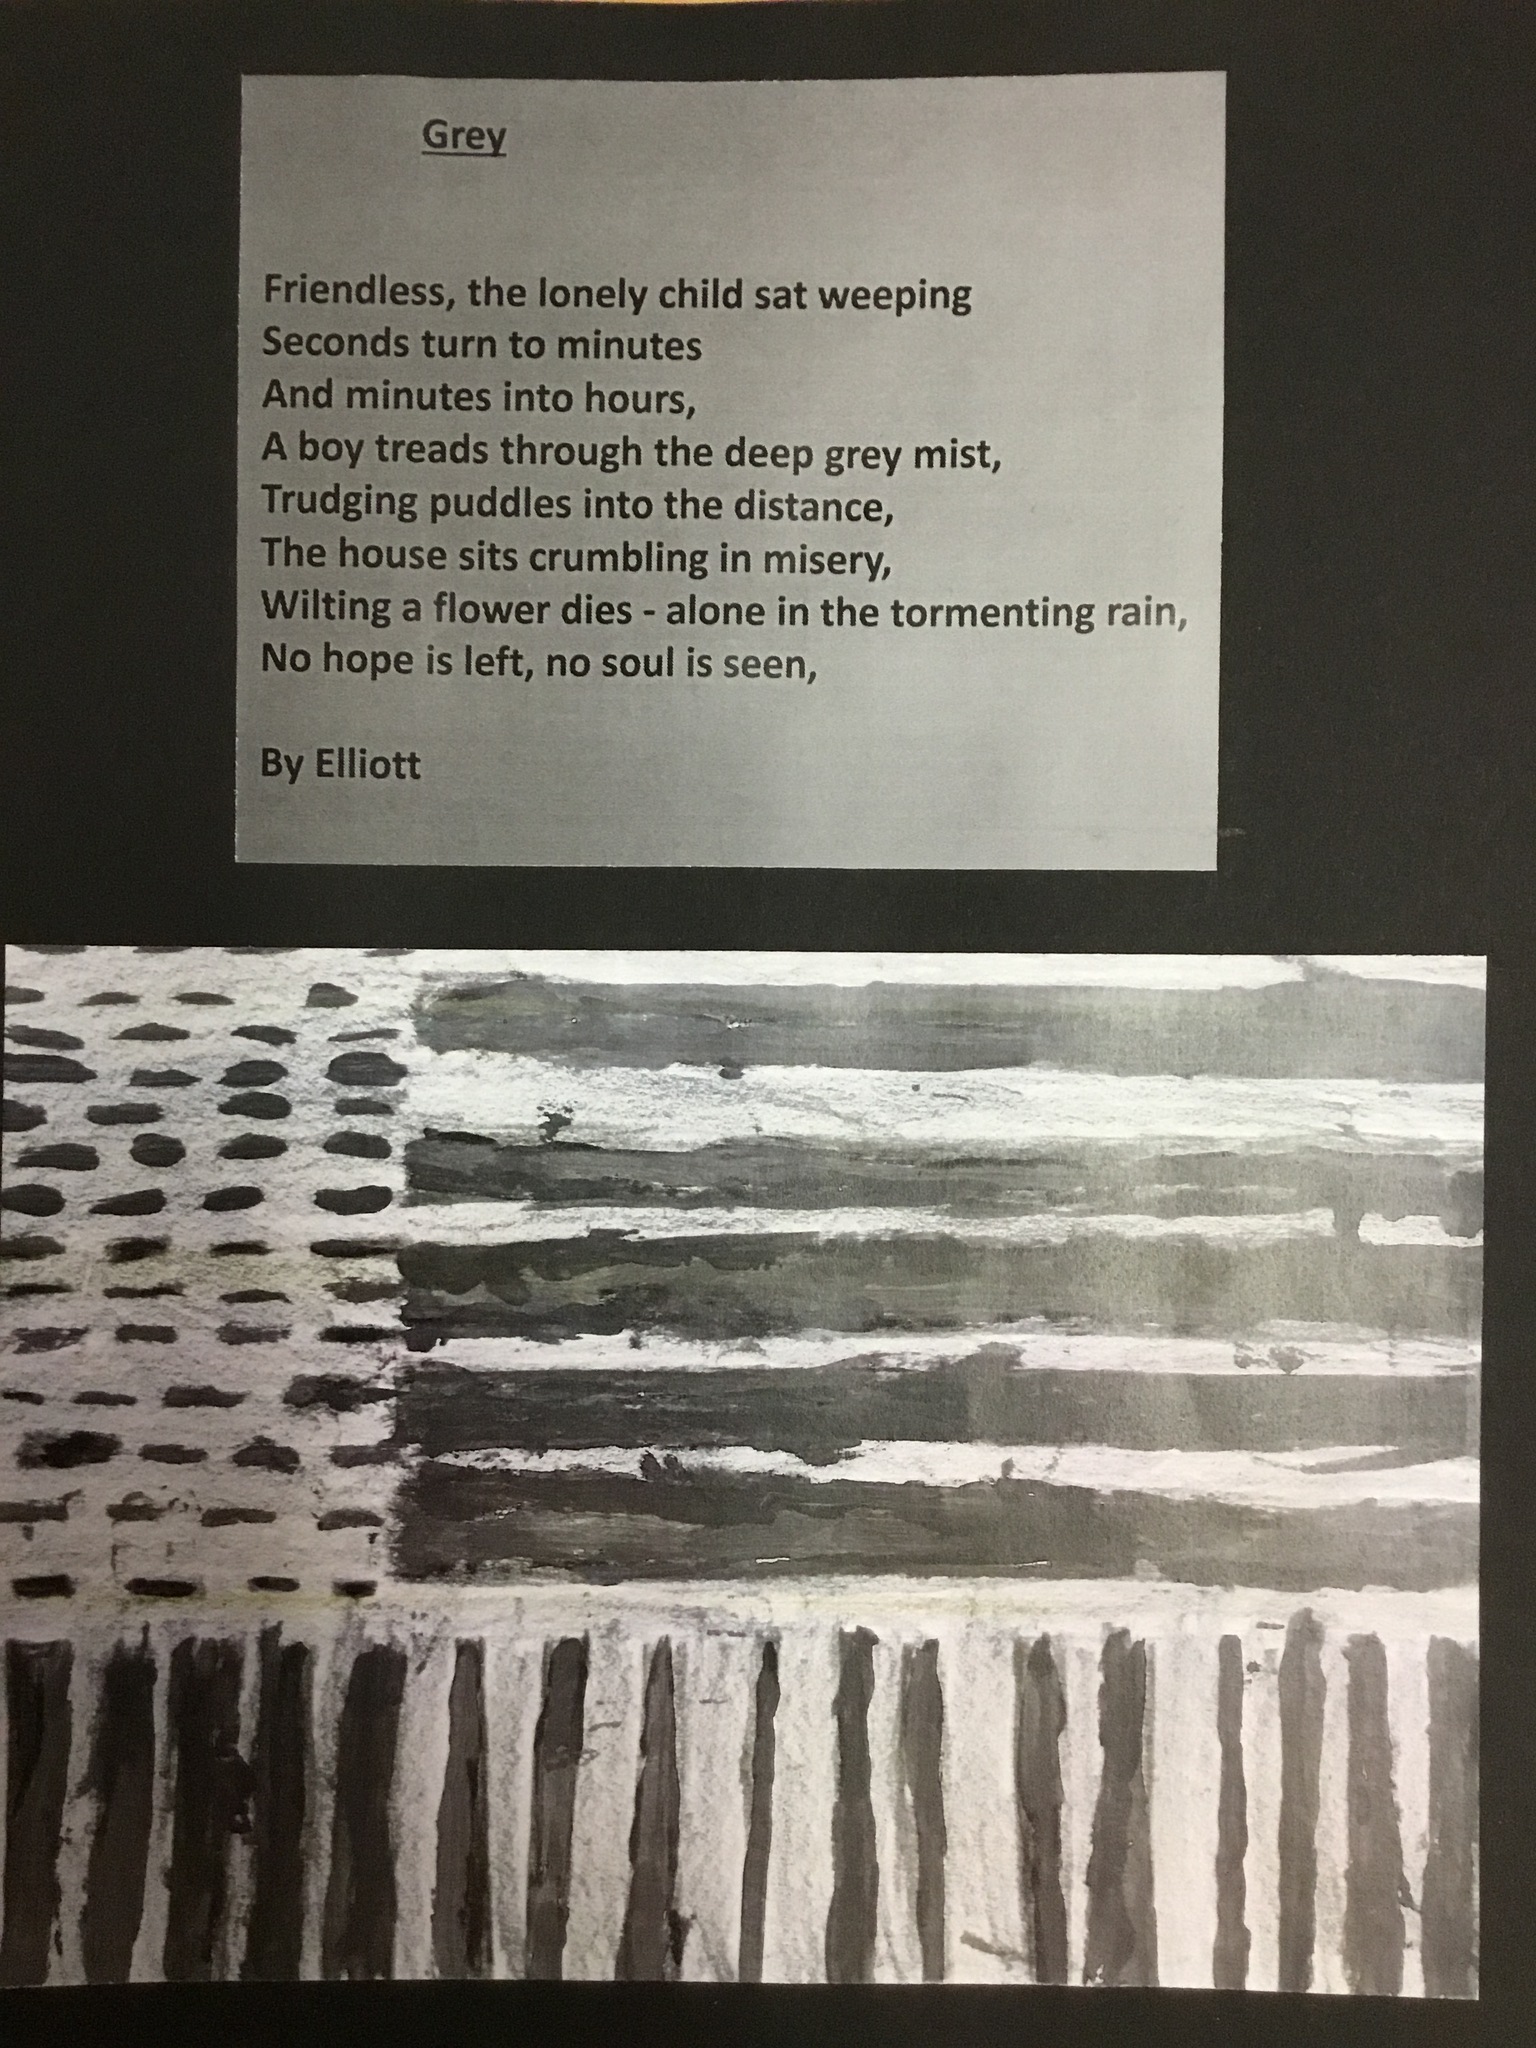 Grey
Friendless, the lonely child sat weeping
Seconds turn to minutes
And minutes into hours,
A boy treads through the deep grey mist,
Trudging puddles into the distance,
The house sits crumbling in misery,
Wilting a flower dies - alone in the tormenting rain,
No hope is left, no soul is seen,
By Elliott